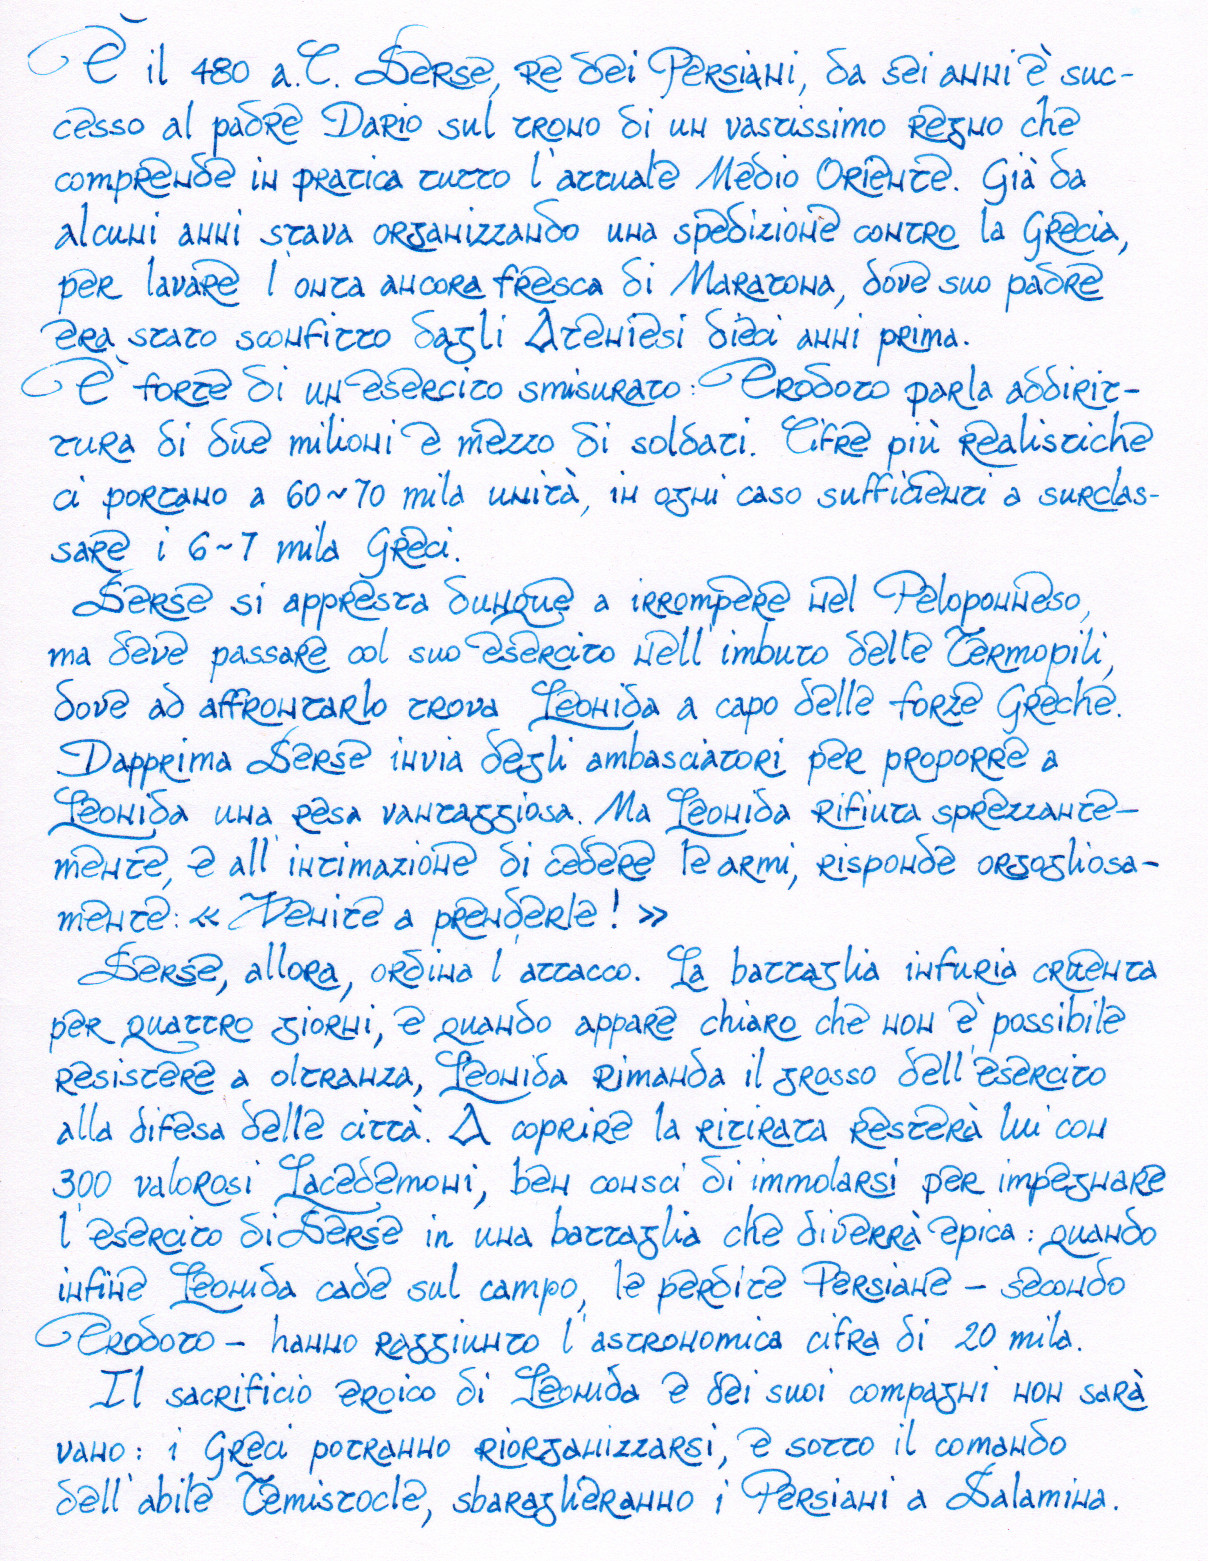 È il 480 a.C. Serse, re dei Persiani, da sei anni è suc-
cesso al padre Dario sul trono di un vastissimo regno che
comprende in pratica tutto l'attuale Medio Oriente. Già da
alcuni anni stava organizzando una spedizione contro la Grecia,
per lavare l'onta ancora fresca di Maratona, dove suo padre
era stato sconfitto dagli Ateniesi dieci anni prima.
È forte di un esercito smisurato: Erodoto parla addirit-
tura di due milioni e mezzo di soldati. Cifre più realistiche
ci portano a 60~70 mila unità, in ogni caso sufficienti a surclas-
sare i 6~7 mila Greci.
Serse si appresta dunque a irrompere nel Peloponneso,
ma deve passare col suo esercito nell'imbuto delle Termopili,
dove ad affrontarlo trova Leonida a capo delle forze Greche.
Dapprima Serse invia degli ambasciatori per proporre a
Leonida una resa vantaggiosa. Ma Leonida rifiuta sprezzante-
mente, e all'intimazione di cedere le armi, risponde orgogliosa-
mente: « Venite a prenderle! »
Serse, allora, ordina l'attacco. La battaglia infuria cruenta
per quattro giorni, e quando appare chiaro che non è possibile
resistere a oltranza, Leonida rimanda il grosso dell'esercito
alla difesa delle città. A coprire la ritirata resterà lui con
300 valorosi Lacedemoni, ben consci di immolarsi per impegnare
l'esercito di Serse in una battaglia che diverrà epica: quando
infine Leonida cade sul campo, le perdite Persiane – secondo
Erodoto – hanno raggiunto l'astronomica cifra di 20 mila.
Il sacrificio eroico di Leonida e dei suoi compagni non sarà
vano: i Greci potranno riorganizzarsi, e sotto il comando
dell'abile Temistocle, sbaraglieranno i Persiani a Salamina.